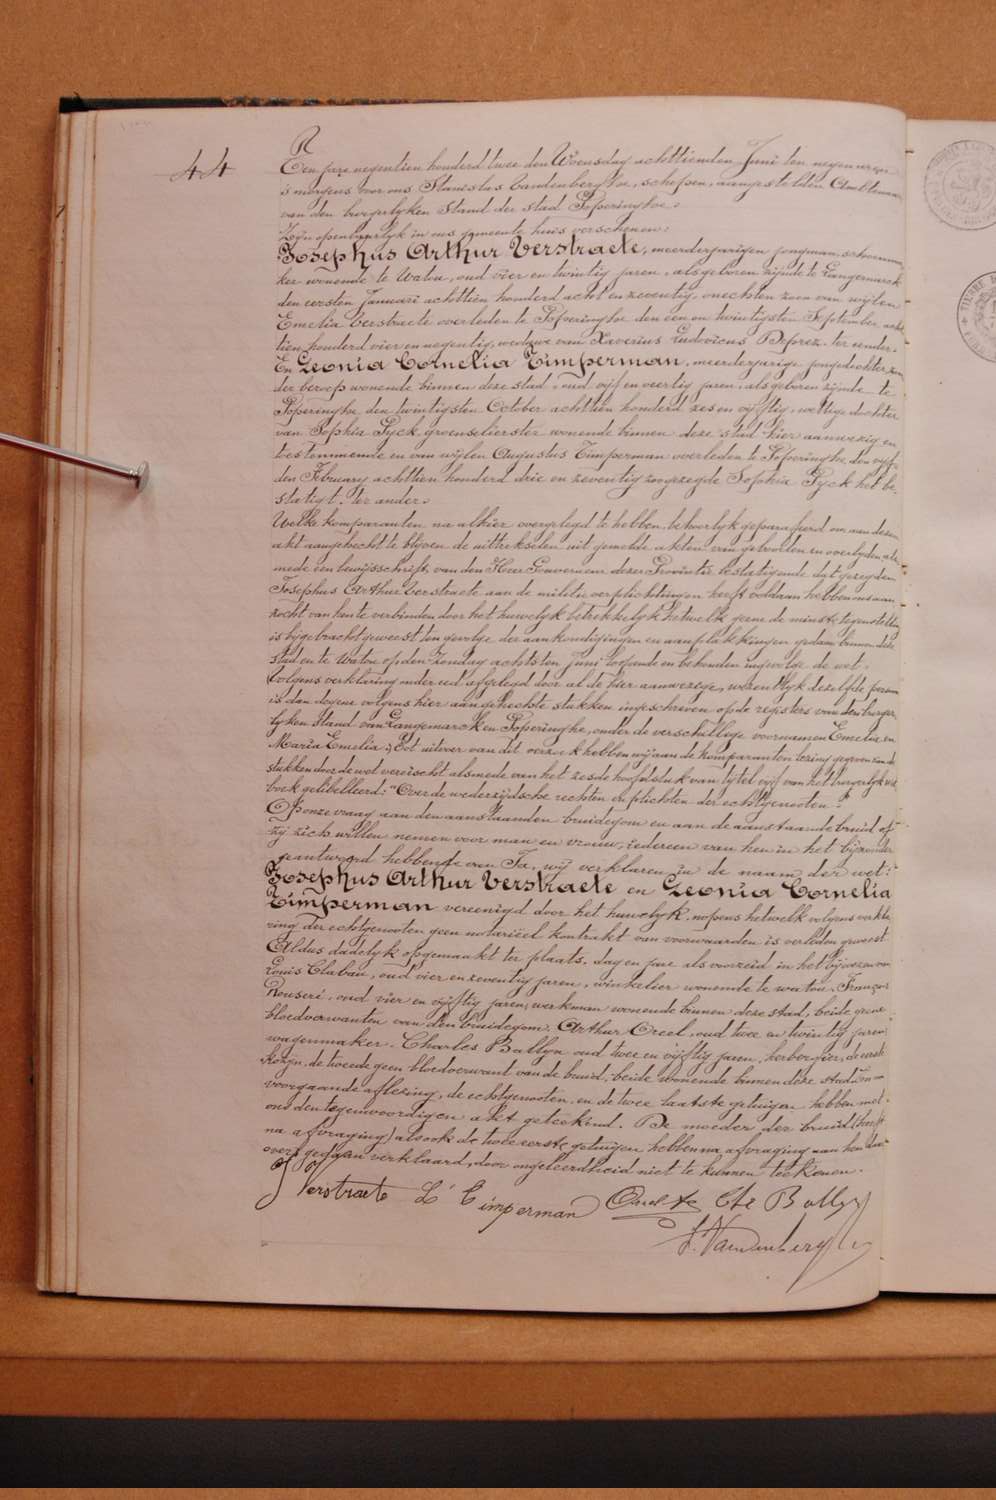 44
Een jare negentien honderd twee den Woensdag achttienden Juni ten negen uren
's morgens voor ons Stanislas Vandenberghe, schepen, aangestelden Ambtenaar
van den burgerlyken Stand der stad Poperinghe.
Zyn openbaarlyk in ons gemeente huis verschenen:
Josephus Arthur Verstraete, meerderjarigen jongman, schoenma
ker wonende te Watou, oud vier en twintig jaren, als geboren zijnde te Langemarck
den eersten Januari achttien honderd acht en zeventig, onechten zoon van wijlen
Emelia Verstraete overleden te Poperinghe den een en twintigsten September acht
tien honderd vier en negentig, weduwe van Xaverius Ludovicus Deprez. ter eender.
En Leonia Cornelia Timperman, meerderjarige jongdochter zon
der beroep wonende binnen deze stad, oud vijf en veertig jaren, als geboren zijnde te
Poperinghe den twintigsten October achttien honderd zes en vijftig, wettige dochter
van Sophia Pyck groenselierster wonende binnen deze stad hier aanwezig en
toestemmende en van wijlen Augustus Timperman overleden te Poperinghe den vijf
den February achttien honderd drie en zeventig zoo gezegde Sophia Pyck het be
statigt. ter ander.
Welke komparanten na alhier overgelegd te hebben, behoorlyk geparafeerd om aan dezen
akt aangehecht te blijven de uittrekselen uit gemelde akten van geboorten en overlyden als
mede een bewijsschrift van den Heer Gouverneur dezer Provintie bestatigende dat gezegden
Josephus Arthur Verstraete aan de militie verplichtingen heeft voldaan hebben ons aan
zocht van hen te verbinden door het huwelyk betrekkelyk hetwelk geene de minste tegenstelling
is bygebracht geweest ten gevolge der aankondigingen en aanplakkingen gedaan binnen deze
stad en te Watou op den Zondag achtsten Juni loopende en behouden ingevolge de wet.
(Volgens verklaring onder eed afgelegd door al de hier aanwezege, wezentlyk dezelfde persoon
is dan degene volgens hier aangehechte stukken ingeschreven op de registers van den burger
lyken Stand van Langemarck en Poperinghe, onder de verschillige voornamen Emelia en
Maria Emelia.) Tot uitver van dit verzoek hebben wij aan de komparanten lezing gegeven van de
stukken door de wet vereischt alsmede van het zesde hoofdstuk van tytel vijf van het burgerlyk wet
boek gelibelleerd: "Over de wederzijdsche rechten en plichten der echtgenooten."
Op onze vraag aan den aanstaanden bruidegom en aan de aanstaande bruid of
zij zich willen nemen voor man en vrouw, iedereen van hen in het byzonder
geantwoord hebbende van Ja; wij verklaren in de naam der wet:
Josephus Arthur Verstraete en Leonia Cornelia
Timperman vereenigd door het huwelyk. nopens hetwelk volgens verkla
ring der echtgenooten geen notariëel kontrakt van voorwaarden is verleden geweest
Aldus dadelyk opgemaakt ter plaats, dag en jare als voorzeid in het bijwezen van
Louis Clabau, oud vier en zeventig jaren, winkelier wonende te watou. François
Rouseré, oud vier en vijftig jaren, werkman wonende binnen deze stad, beide geene
bloedverwanten van den bruidegom; Arthur Oreel, oud twee en twintig jaren
wagenmaker. Charles Ballyn oud twee en vijftig jaren, herbergier, de eerste
kozijn, de tweede geen bloedverwant van de bruid, beide wonende binnen deze stad. En
voorgaande aflezing, de echtgenooten en de twee laatste getuigen hebben met
ons den tegenwoordigen akt geteekend. De moeder der bruid (heeft
na afvraging) alsook de twee eerste getuigen hebben na afvraging aan hen daar
over gedaan verklaard, door ongeleerdheid niet te kunnen teekenen.
J Verstraete L C Timperman Oreel Ar Che Ballyn
S. Vandenberghe